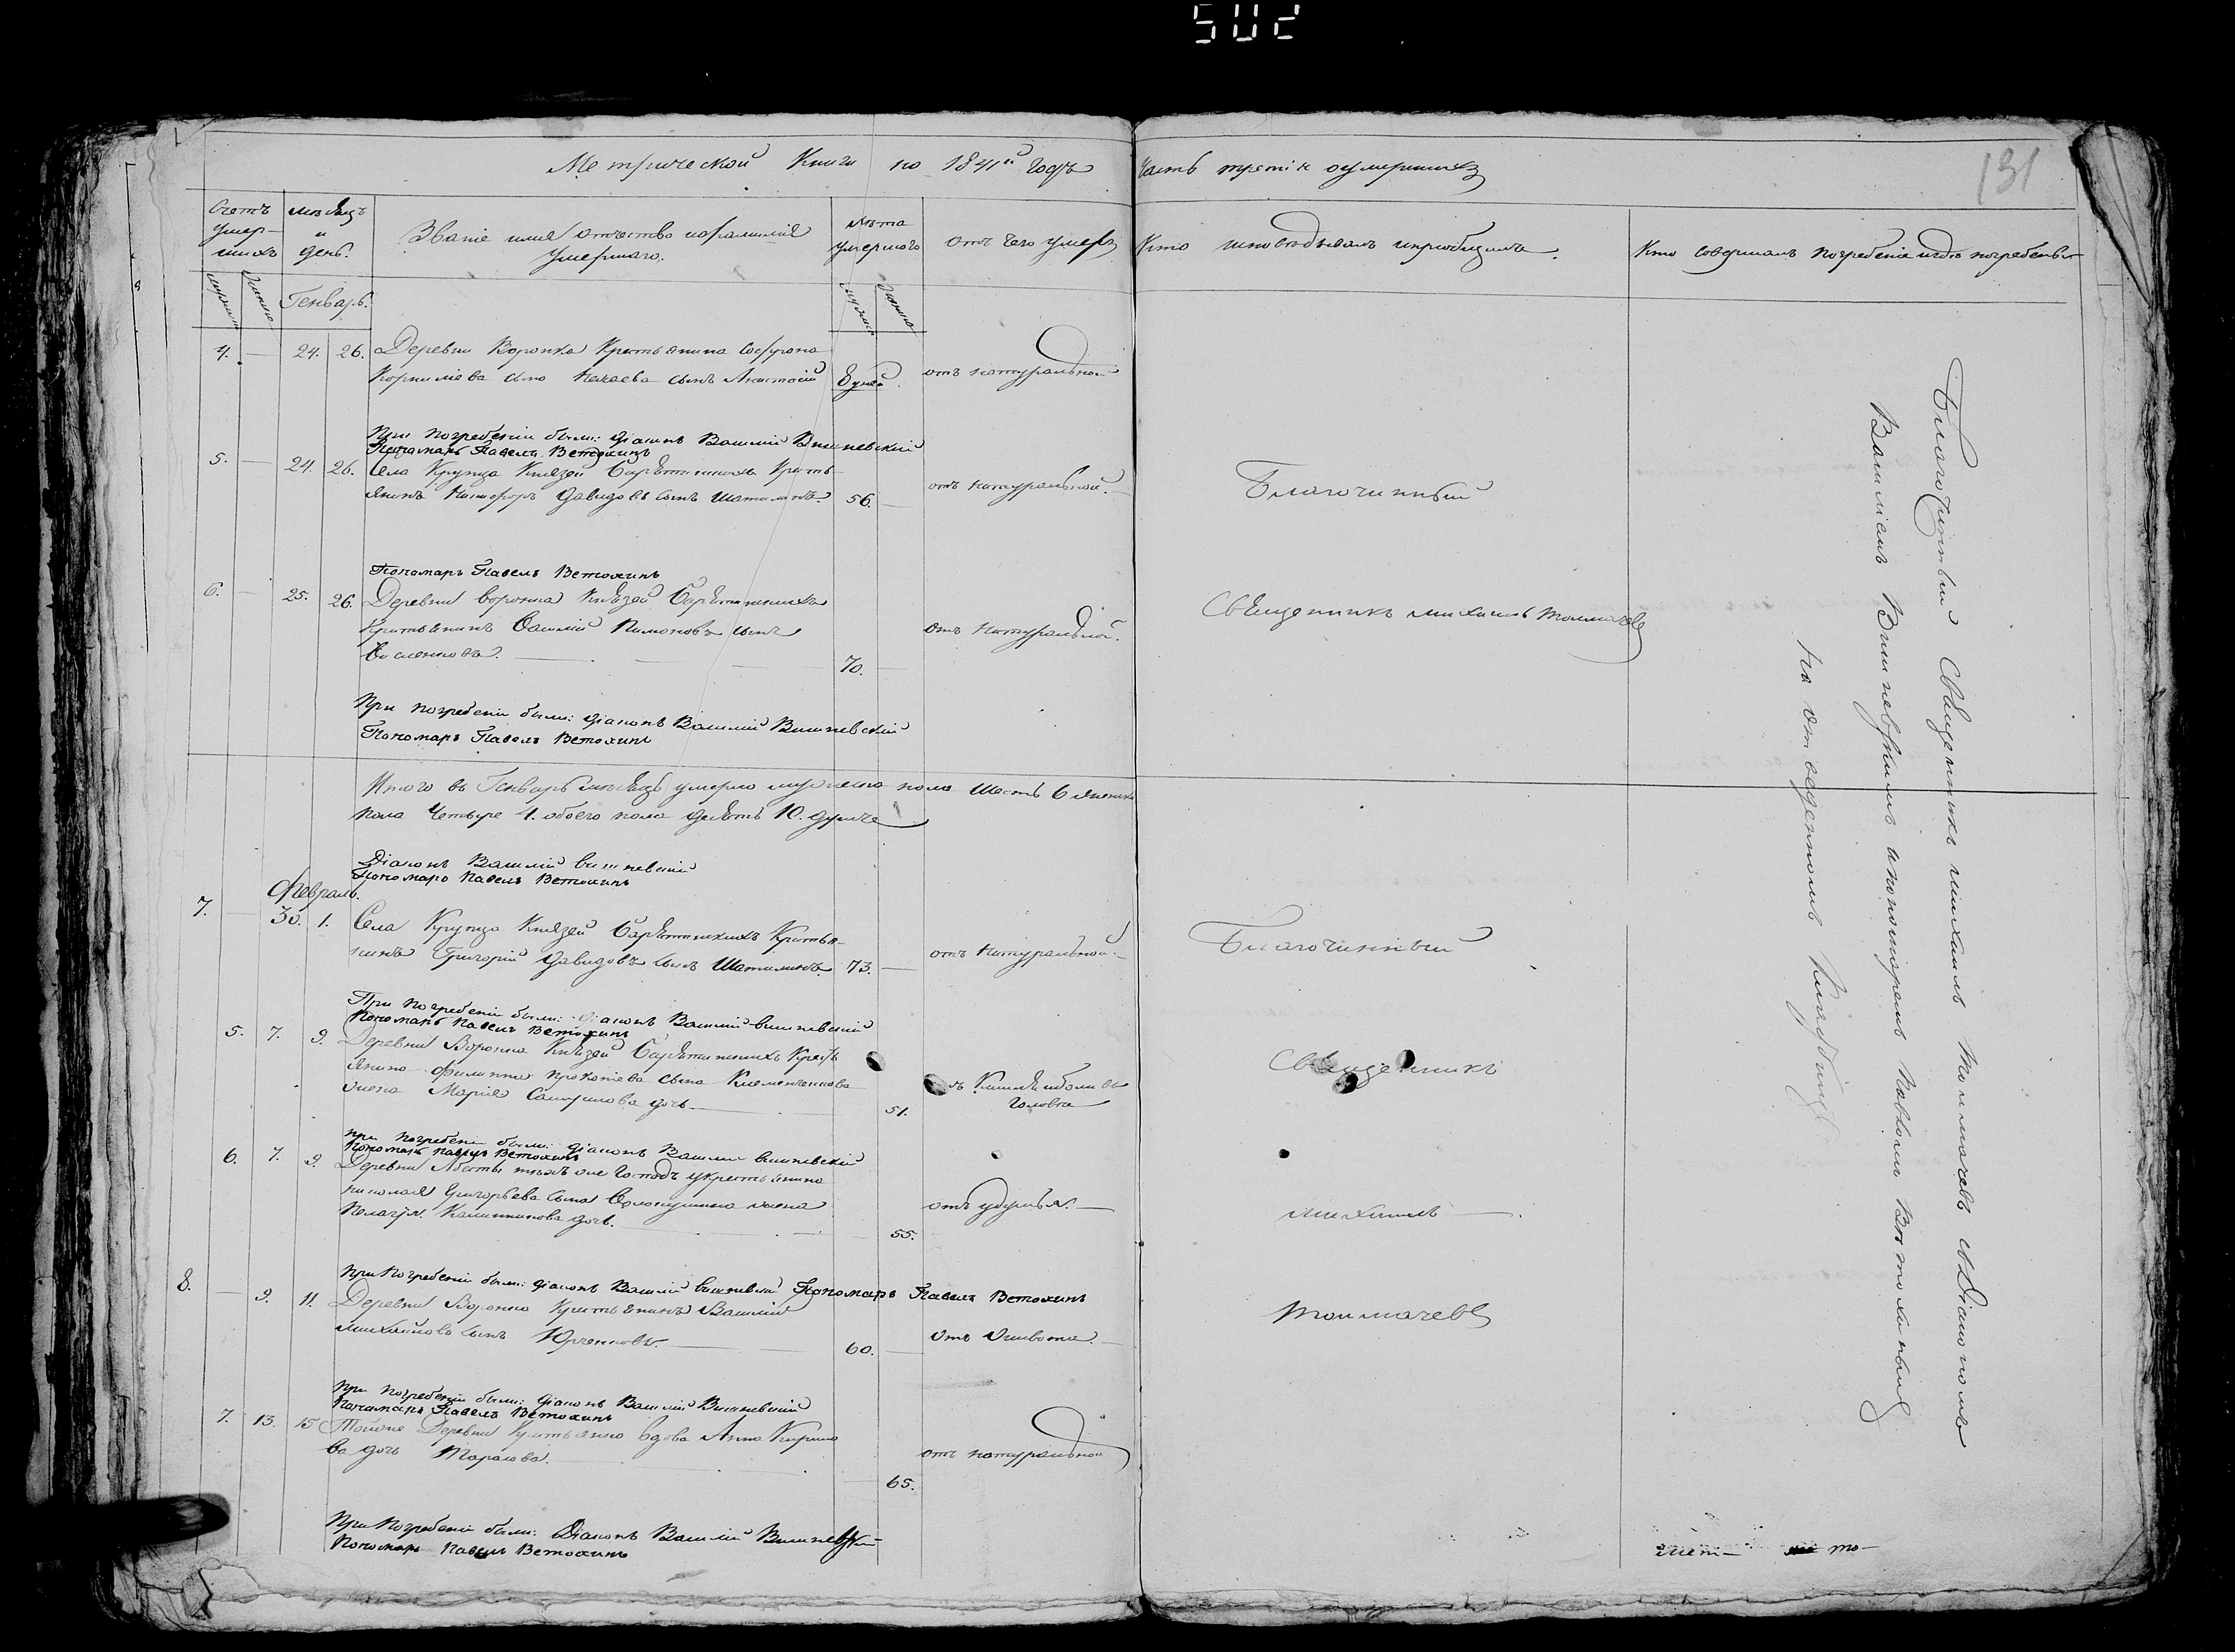 502
131
Метрической Книги на 1841й годъ Часть третія о умершихъ
Счетъ умер-шихъ
мѣсяцъ и день.
Званіе имя отчество и фамилія
умершаго.
лѣта
умершаго
отъ чего умеръ
Кто исповѣдывалъ и пріобщалъ.
Кто совершалъ погребеніе и гдѣ погребены
Генварь.
4. — 24. 26. Деревни Воронка Крестьянина Софрона
Корнилева сына Нечаева сынъ
отъ натуральной
При погребеніи были: Діаконъ Василій Вишневскій
Пономарь Павелъ Ветохинъ
5. — 24. 26. Села Крупца Князей Барятинскихъ Кресть-
янинъ Никифоръ Давидовъ сынъ Шаталинъ. 56. —
отъ натуральной. —
Благочинный
Пономарь Павелъ Ветохинъ
6. — 25. 26. Деревни Воронка Князей Барятинскихъ
Крестьянинъ Василій сынъ
70. —
отъ натуральной.
Священникъ Михаилъ Толмачевъ
При погребеніи были: Діаконъ Василій Вишневскій
Пономарь Павелъ Ветохинъ
Итого въ Генварѣ мѣсяцѣ умерло мужеска пола шесть 6 женска
пола Четыре 4. обоего пола десять 10. душъ
Діаконъ Василій Вишневскій
Пономарь Павелъ Ветохинъ
Февраль.
7. — 30. 1. Села Крупца Князей Барятинскихъ Крестья-
нинъ Григорій Давидовъ сынъ Шаталинъ. 73. —
отъ натуральной. —
Благочинный
При погребеніи были: Діаконъ Василій Вишневскій
Пономарь Павелъ Ветохинъ
5. 7. 9. Деревни Воронка Князей Барятинскихъ Кресть
янина Филиппа Прокопіева сына
жена Марія дочь. — 51.
Головка
Священникъ
При погребеніи были: Діаконъ Василій Вишневскій
Пономарь Павелъ Ветохинъ
6. 7. 9. Деревни тѣхъ же Господъ крестьянина
Николая Григорьева сына жена
Пелагія Калинникова дочь. — 55.
отъ удушья. —
Михаилъ —.
При погребеніи были: Діаконъ Василій Вишневскій Пономарь Павелъ Ветохинъ
8. — 9. 11. Деревни Воронка Крестьянинъ Василій
Михайловъ сынъ Юрченковъ. — 60. —
отъ живота. —
Толмачевъ
При погребеніи были: Діаконъ Василій Вишневскій
Пономарь Павелъ Ветохинъ
7. 13. 15 Тойже Деревни Крестьянка вдова Анна Кирило
ва дочь Тарасова. — 65.
отъ натуральной
При погребеніи были: Діаконъ Василій Вишневскій
Пономарь Павелъ Ветохинъ
Благочинный Священникъ Михаилъ Толмачевъ съ Діакономъ
Василіемъ Вишневскимъ и пономаремъ Павломъ Ветохинымъ
на отведенномъ Кладбищѣ